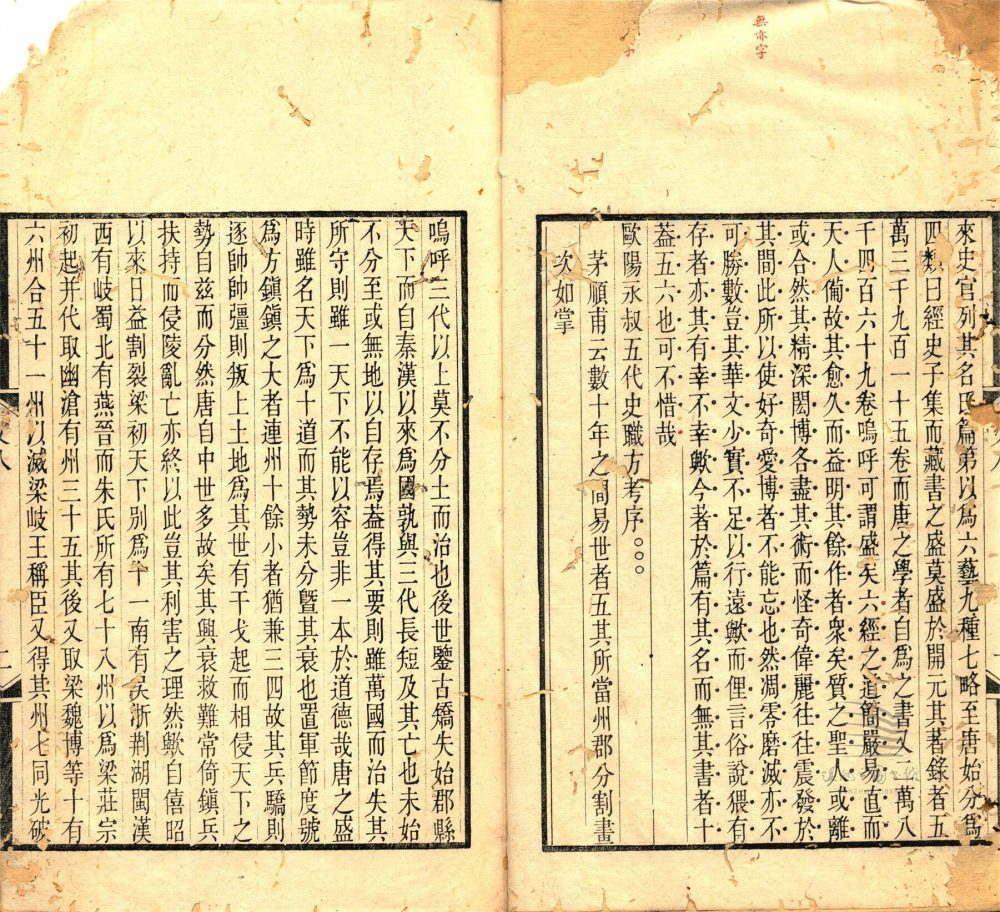 無亦字
來史官列其名氏篇第以爲六藝九種七略至唐始分爲
四類曰經史子集而藏書之盛莫盛於開元其著錄者五
萬三千九百一十五卷而唐之學者自爲之書又二萬八
千四百六十九卷嗚呼可謂盛矣六經之道簡嚴易直而
天人備故其愈久而益明其餘作者衆矣質之聖人或離
或合然其精深閎博各盡其術而怪奇偉麗往往震發於
其間此所以使好奇愛博者不能忘也然凋零磨滅亦不
可勝數豈其華文少實不足以行遠歟而俚言俗說猥有
存者亦其有幸不幸歟今著於篇有其名而無其書者十
蓋五六也可不惜哉
歐陽永叔五代史職方考序○○○
茅順甫云數十年之間易世者五其所當州郡分割畫
次如掌
嗚呼三代以上莫不分土而治也後世鑒古矯失始郡縣
天下而自秦漢以來爲國孰與三代長短及其亡也未始
不分至或無地以自存焉蓋得其要則雖萬國而治失其
所守則雖一天下不能以容豈非一本於道德哉唐之盛
時雖名天下爲十道而其勢未分曁其衰也置軍節度號
爲方鎭鎭之大者連州十餘小者猶兼三四故其兵驕則
逐帥帥彊則叛上土地爲其世有干戈起而相侵天下之
勢自兹而分然唐自中世多故矣其興衰救難常倚鎭兵
扶持而侵陵亂亡亦終以此豈其利害之理然歟自僖昭
以來日益割裂梁初天下別爲十一南有吳浙荆湖閩漢
西有岐蜀北有燕晉而朱氏所有七十八州以爲梁莊宗
初起并代取幽滄有州三十五其後又取梁魏博等十有
六州合五十一州以滅梁岐王稱臣又得其州七同光破